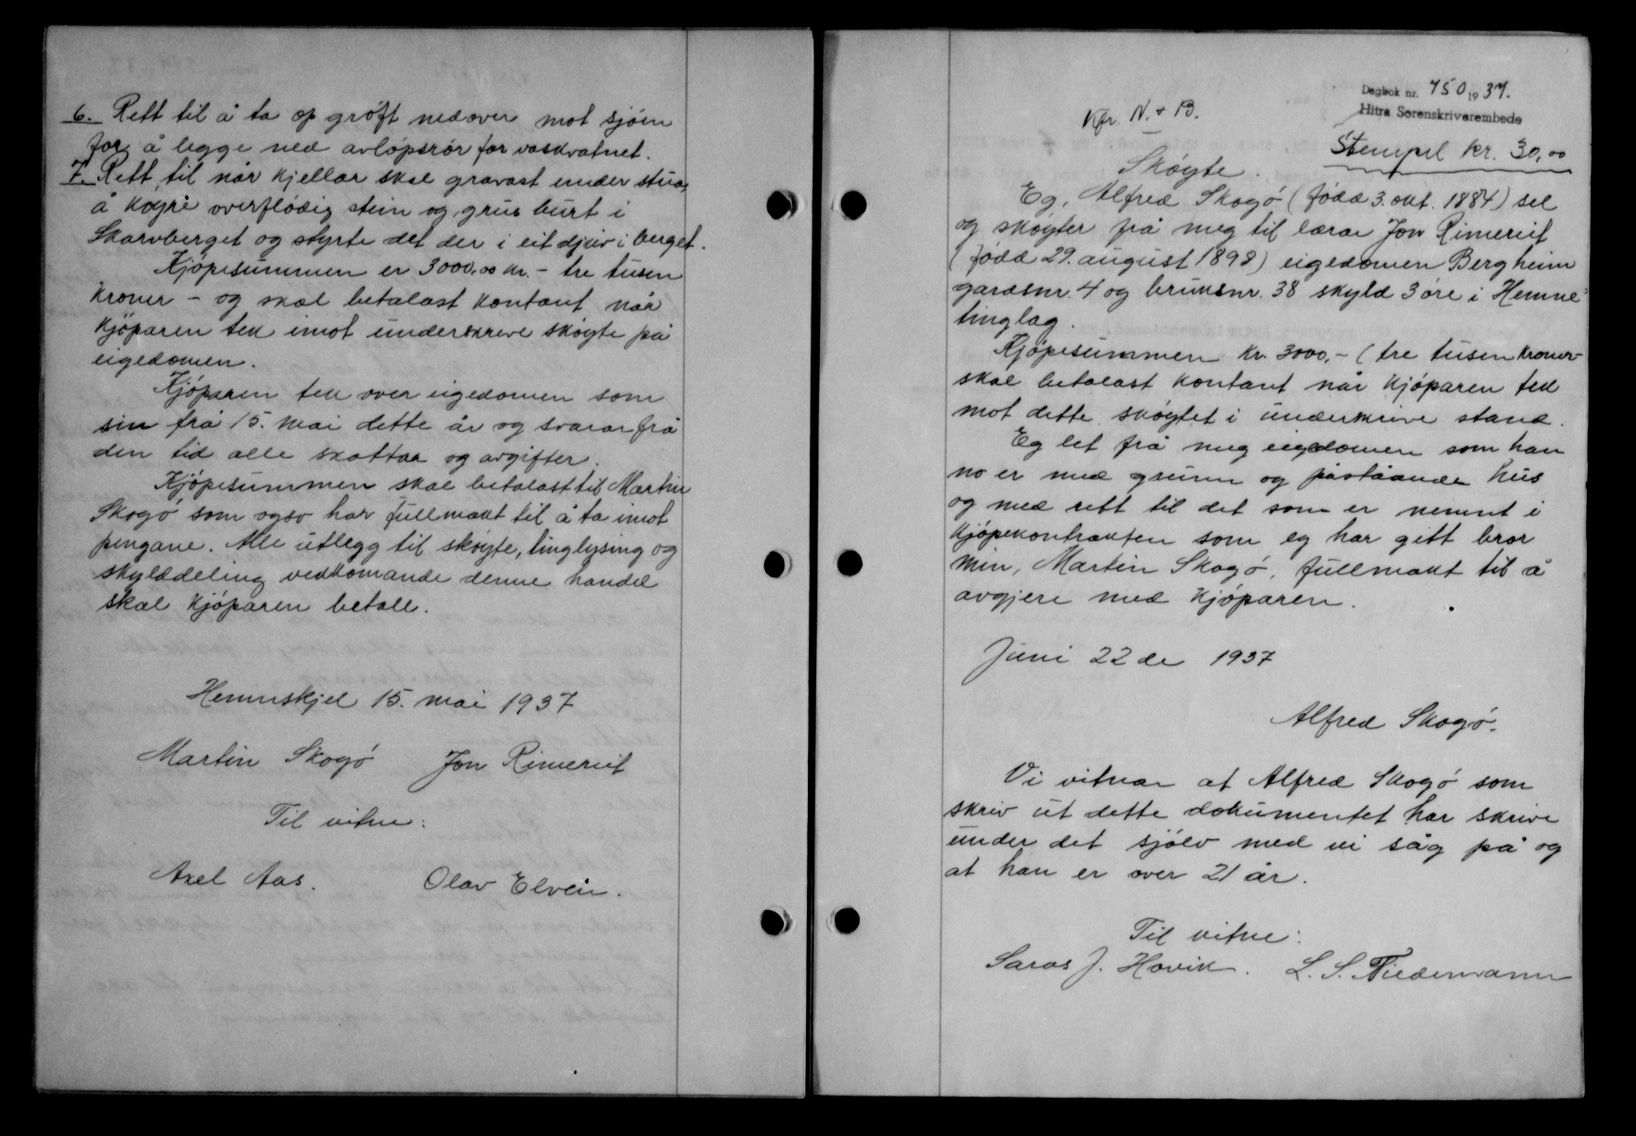 6. Rett til å ta op grøft nedover mot sjøen
for å legge ned avløpsrør for vaskvatnet.
7. Rett, til når kjellar skal gravast under stua,
å køyre overflødig stein og grus burt i
Skarvberget og styrte det der i eit djuv i berget.
Kjøpesummen er 3000,00 kr. - tre tusen
kroner - og skal betalast kontant når
kjøparen tek imot underskreve skøyte på
eigedomen.
Kjøparen tek over eigedomen som
sin frå 15. mai dette år og svarar frå
den tid alle skattar og avgifter.
Kjøpesummen skal betalast til Martin
Skogø som ogso har fullmakt til å ta imot
pengane. Alle utlegg til skøyte, tinglysing og
skylddeling vedkomande denne handel
skal kjøparen betale.
Hemnskjel 15. mai 1937
Martin Skogø Jon Rimereit
Til vitne:
Axel Aas. Olav Elvein.
Dagbok nr. 750 1937.
Hitra Sorenskriverembede
Kfr. N. + B.
Stempel kr. 30,00
Skøyte.
Eg, Alfred Skogø (fødd 3. okt. 1884) sel
og skøyter frå meg til lærar Jon Rimereit
(fødd 29. august 1898) eigedomen Bergheim
gardsnr. 4 og bruksnr. 38 skyld 3 øre i Hemne
tinglag.
Kjøpesummen kr. 3000,- (tre tusen kroner-
skal betalast kontant når kjøparen tek
mot dette skøytet i underskrive stand.
Eg let frå meg eigedomen som han
no er med grunn og påståande hus
og med rett til det som er nemnt i
kjøpekontrakten som eg har gitt bror
min, Martin Skogø, fullmakt til å
avgjere med kjøparen.
Juni 22 de 1937
Alfred Skogø.
Vi vitnar at Alfred Skogø som
skriv ut dette dokumentet har skrive
under det sjølv med vi såg på og
at han er over 21 år.
Til vitne:
Saras J. Hovik. L. S. Tiedemann